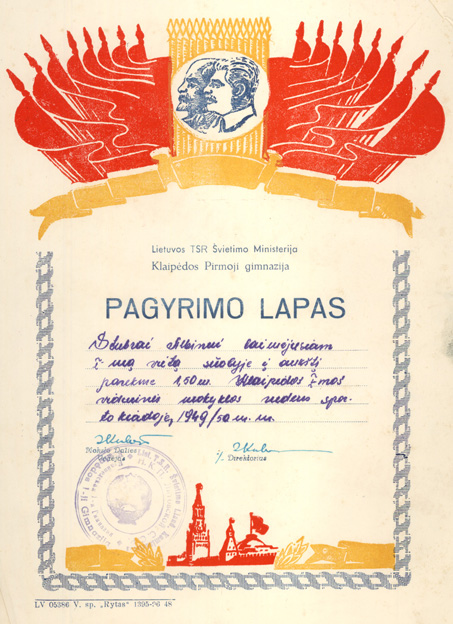 Lietuvos TSR Švietimo Ministerija
Klaipėdos Pirmoji gimnazija
PAGYRIMO LAPAS
Albinui laimėjusiam
I-mą vietą šuolyje į aukštį
pasekme 1,50 m. Klaipėdos I-mos
vidurinės mokyklos rudens spor-
to 1949/50 m. m.
Mokslo Dalies
Vedėjas
Direktorius
LV 05386 V. sp. „Rytas" 1395-96 48